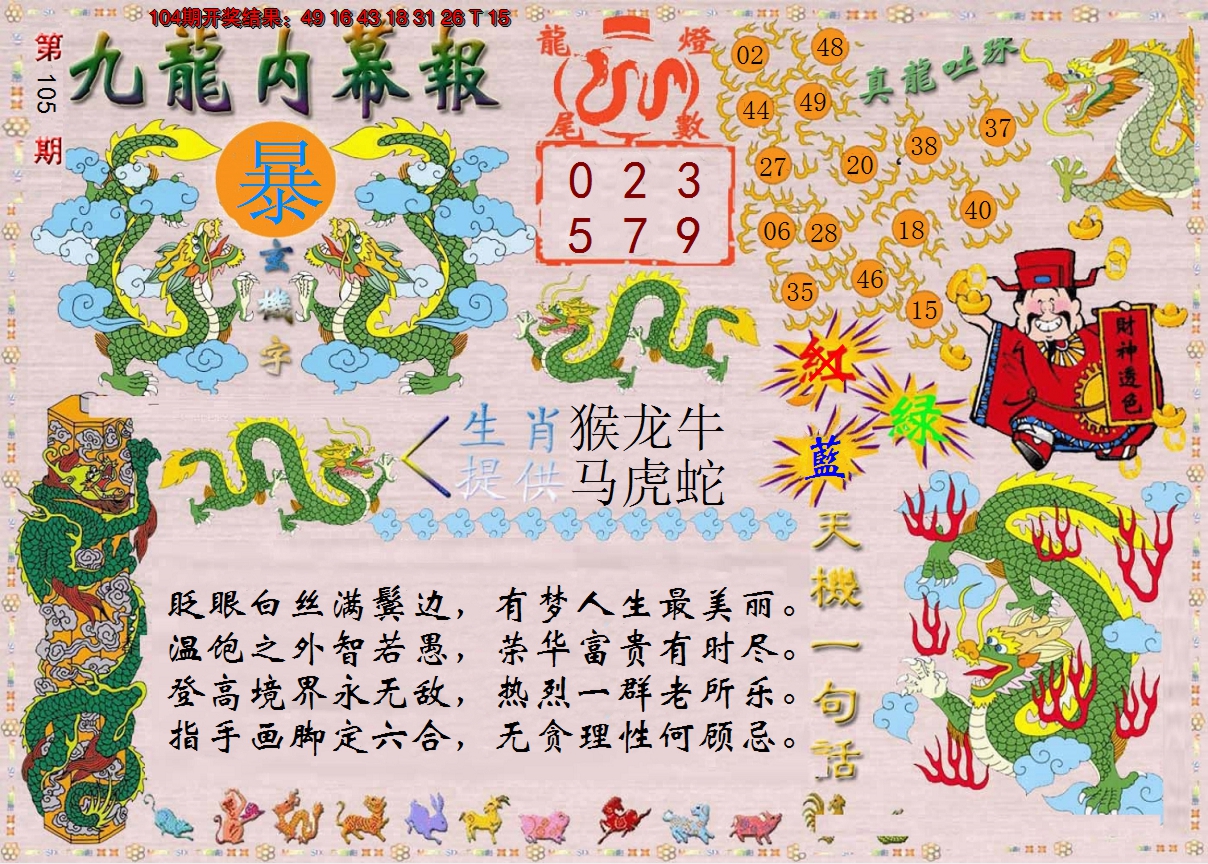 104期开奖结果：49 16 43 18 31 26 T 15
第105期
九龍内幕報
暴
玄機字
龍燈
尾數
0 2 3
5 7 9
真龍吐珠
02 48
44 49
27 20 38 37
06 28 18 40
35 46 15
財神透色
紅
綠
藍
生肖 猴龙牛
提供 马虎蛇
天機一句話
眨眼白丝满鬓边，有梦人生最美丽。
温饱之外智若愚，荣华富贵有时尽。
登高境界永无敌，热烈一群老所乐。
指手画脚定六合，无贪理性何顾忌。